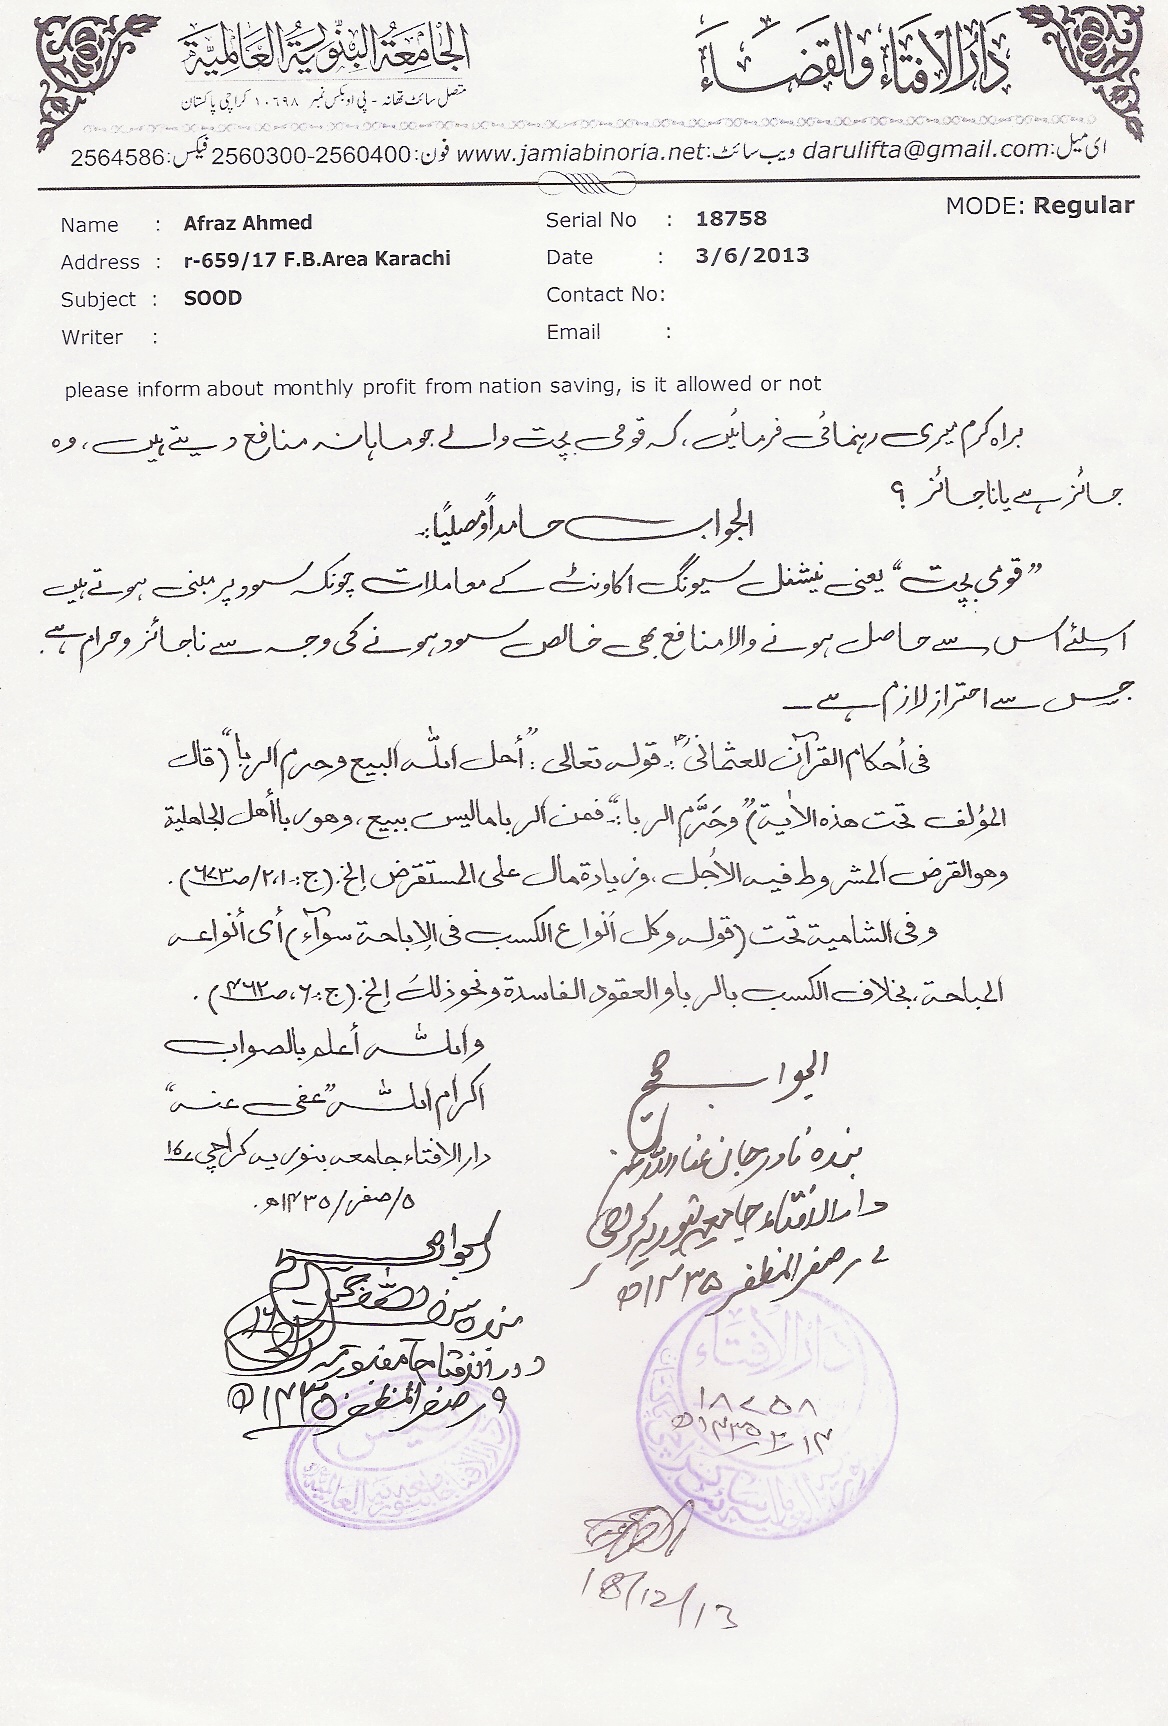 دارالافتاء والقضاء
الجامعة البنورية العالمية
متصل سائٹ تھانہ - پی او بکس نمبر ۱۰۶۹۸ کراچی پاکستان
ای میل:darulifta@gmail.com ویب سائٹ:www.jamiabinoria.net فون:2560300-2560400 فیکس:2564586
MODE: Regular
Name : Afraz Ahmed
Serial No : 18758
Address : r-659/17 F.B.Area Karachi
Date : 3/6/2013
Subject : SOOD
Contact No:
Writer :
Email :
please inform about monthly profit from nation saving, is it allowed or not
براہ کرم میری رہنمائی فرمائیں، کہ قومی بچت والے جو ماہانہ منافع دیتے ہیں، وہ
جائز ہے یا ناجائز ؟
الجواب حامداً ومصلیاً:
”قومی بچت“ یعنی نیشنل سیونگ اکاونٹ کے معاملات چونکہ سود پر مبنی ہوتے ہیں
اسلئے اس سے حاصل ہونے والا منافع بھی خالص سود ہونے کی وجہ سے ناجائز وحرام ہے۔
جس سے احتراز لازم ہے۔
فی أحکام القرآن للعثمانیؒ: قوله تعالی: ”أحل الله البیع وحرم الربا“ (قال
المؤلف تحت هذه الاٰیة) ”وحَرَّم الربا“: فمن الربا مالیس ببیع، وهو ربا أهل الجاهلیة
وهو القرض المشروط فیه الأجل، وزیادة مال علی المستقرض إلخ. (ج:۲،۱/صـ۶۷۳).
وفی الشامیة تحت (قوله وکل أنواع الکسب فی الإباحة سوآء) أی أنواعه
المباحة، بخلاف الکسب بالربا والعقود الفاسدة ونحو ذلك إلخ. (ج:۶، صـ۴۶۲).
والله أعلم بالصواب
اکرام الله ”عفی عنه“
دارالافتاء جامعہ بنوریہ کراچی ۱۶
۵/صفر/۱۴۳۵ھ
الجواب صحیح
بندہ نادر جان عفا اللہ عنہ
دارالافتاء جامعہ بنوریہ کراچی
۷ صفر المظفر ۱۴۳۵ھ
الجواب صحیح
بندہ سیف اللہ
دارالافتاء جامعہ بنوریہ
۹ صفر المظفر ۱۴۳۵ھ
دارالافتاء
۱۸۷۵۸
۱۴
۱۴۳۵ھ
رئیس
دارالافتاء جامعہ بنوریہ العالمیہ
18/12/13